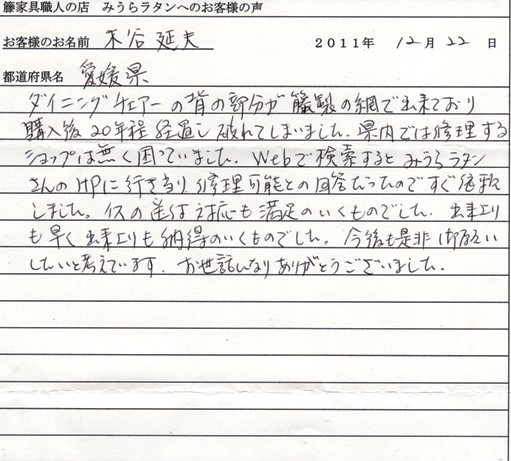 籐家具職人の店 みうらラタンへのお客様の声
お客様のお名前 木谷 延夫 2011年 12月 22日
都道府県名 愛媛県
ダイニングチェアーの背の部分が籐製の網で出来ており
購入後20年程経過し破れてしまいました。県内では修理する
ショップは無く困っていました。Webで検索するとみうらラタン
さんのHPに行き当り、修理可能との回答だったのですぐ依頼
しました。イスの送付対応も満足のいくものでした。出来上り
も早く出来上りも納得のいくものでした。今後も是非御願い
したいと考えています。お世話になりありがとうございました。